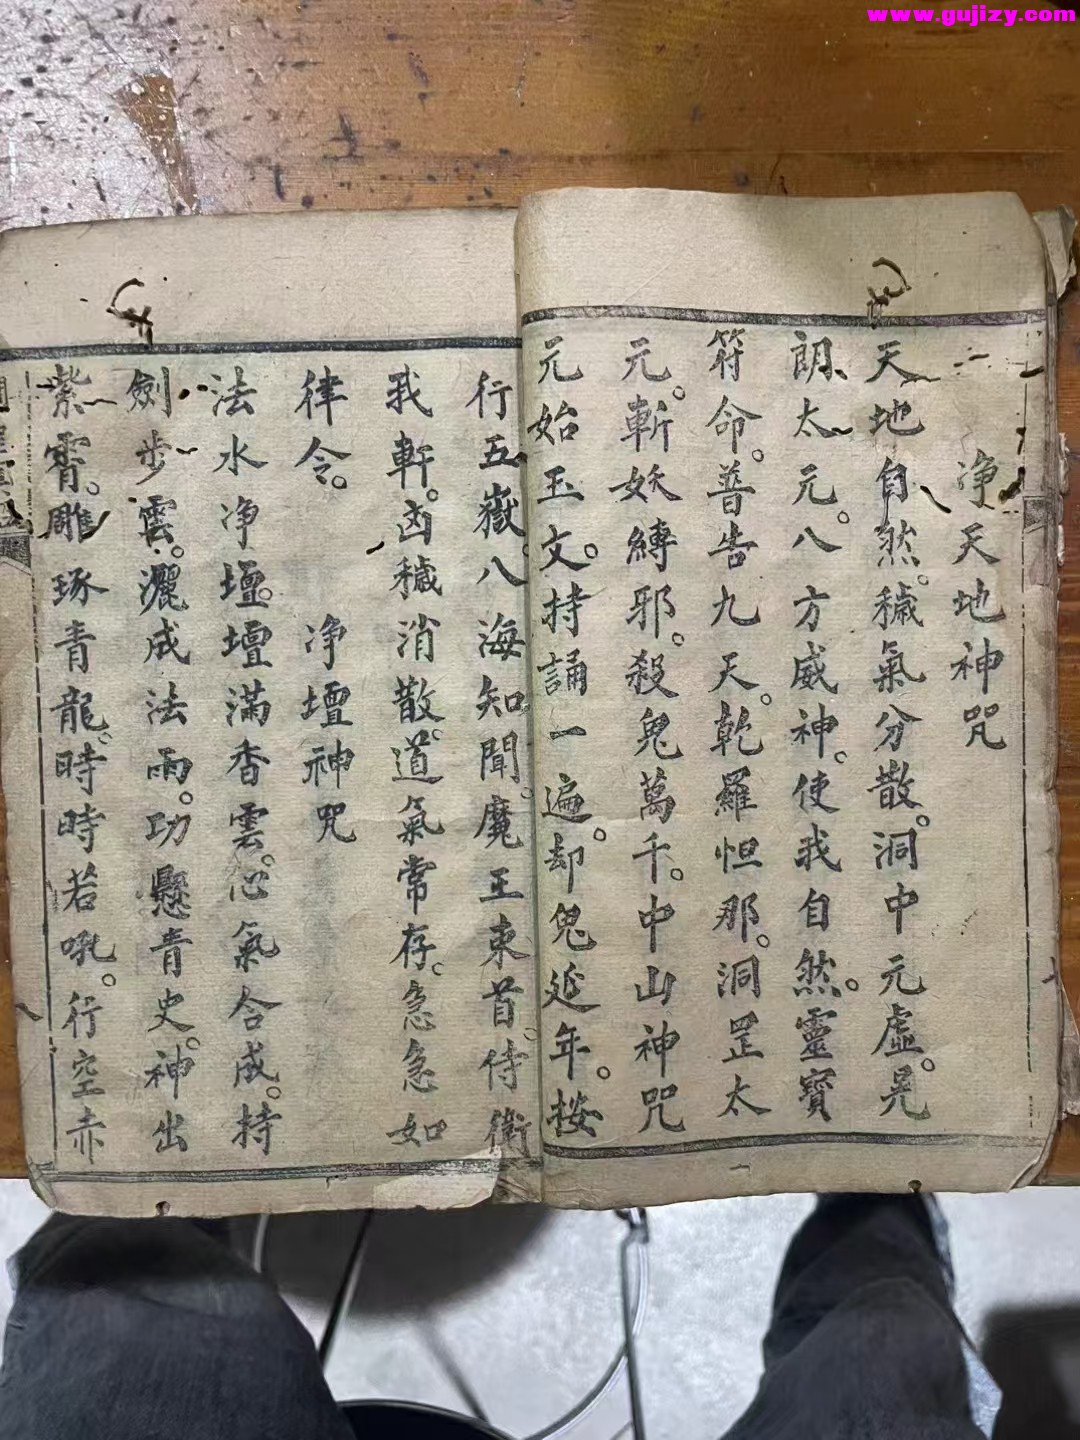 www.gujizy.com
净天地神咒
天地自然。穢氣分散。洞中元虛。晃
朗太元。八方威神。使我自然。靈寶
符命。普告九天。乾羅怛那。洞罡太
元。斬妖縛邪。殺鬼萬千。中山神咒
元始玉文。持誦一遍。却鬼延年。按
行五嶽。八海知聞。魔王束首。侍衛
我軒。凶穢消散。道氣常存。急急如
律令。 净壇神咒
法水净壇。壇滿香雲。心氣合成。持
劍步雲。灑成法雨。功懸青史。神出
紫霄。雕琢青龍。時時若吼。行空赤